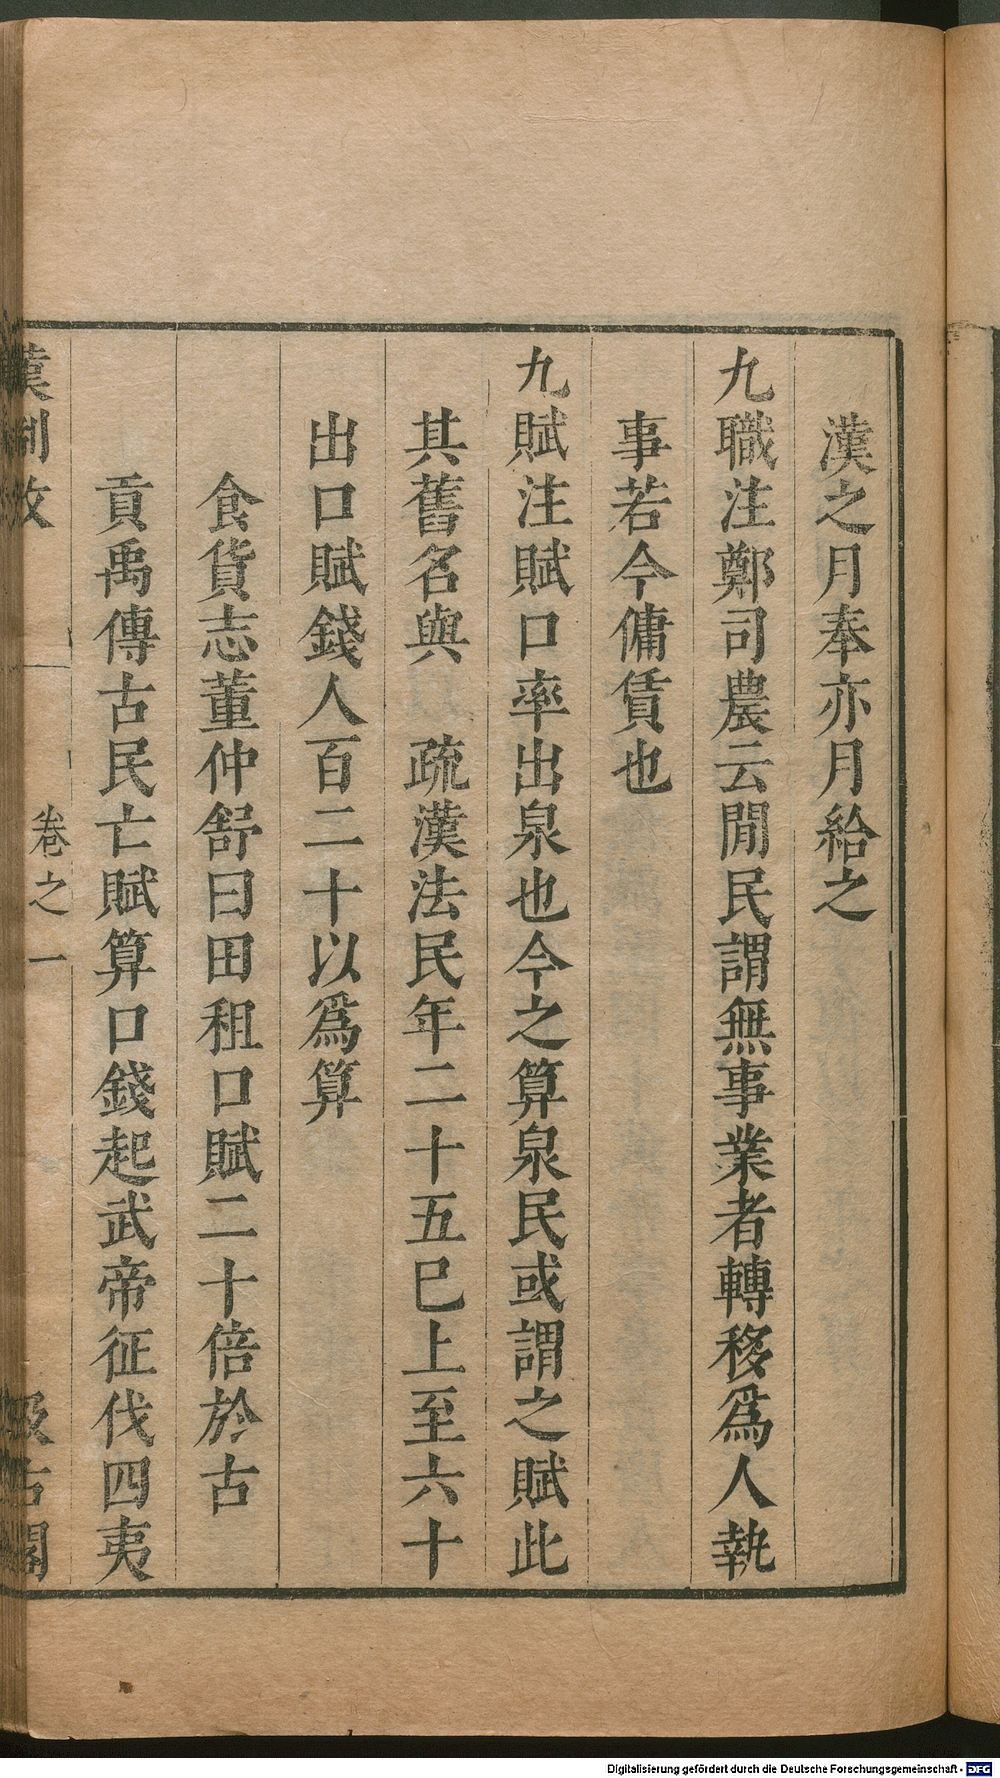 漢之月奉亦月給之
九職注鄭司農云閒民謂無事業者轉移爲人執
事若今傭賃也
九賦注賦口率出泉也今之算泉民或謂之賦此
其舊名與　疏漢法民年二十五巳上至六十
出口賦錢人百二十以爲算
食貨志董仲舒曰田租口賦二十倍於古
貢禹傳古民亡賦算口錢起武帝征伐四夷
漢制攷　卷之一　汲古閣
Digitalisierung gefördert durch die Deutsche Forschungsgemeinschaft - DFG